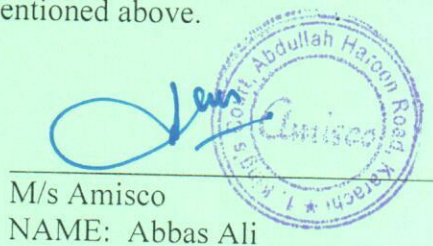 entioned above.
1, King's Court, Abdullah Haroon Road, Karachi ★
Amisco
M/s Amisco
NAME: Abbas Ali